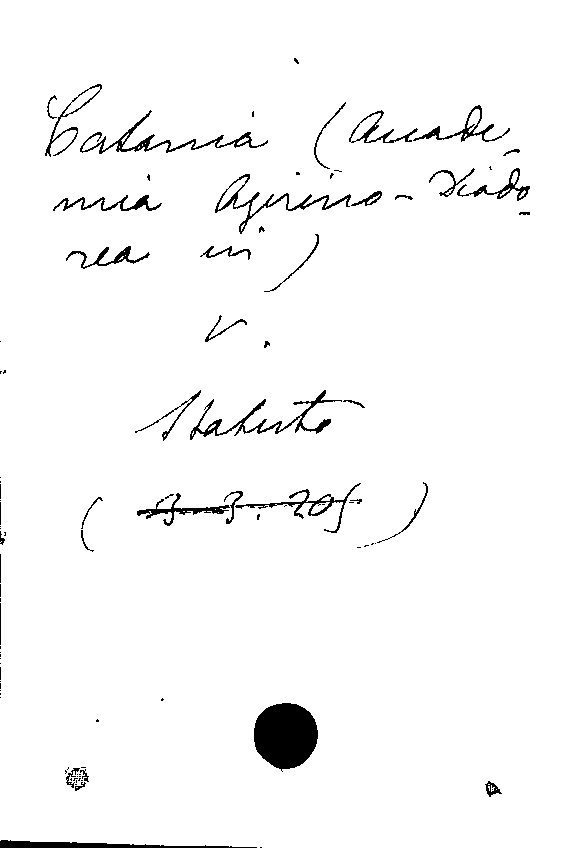 Catania (Accade-
mia Agirino-Diodo-
rea in)
V.
Statuto
(3 3. 205)